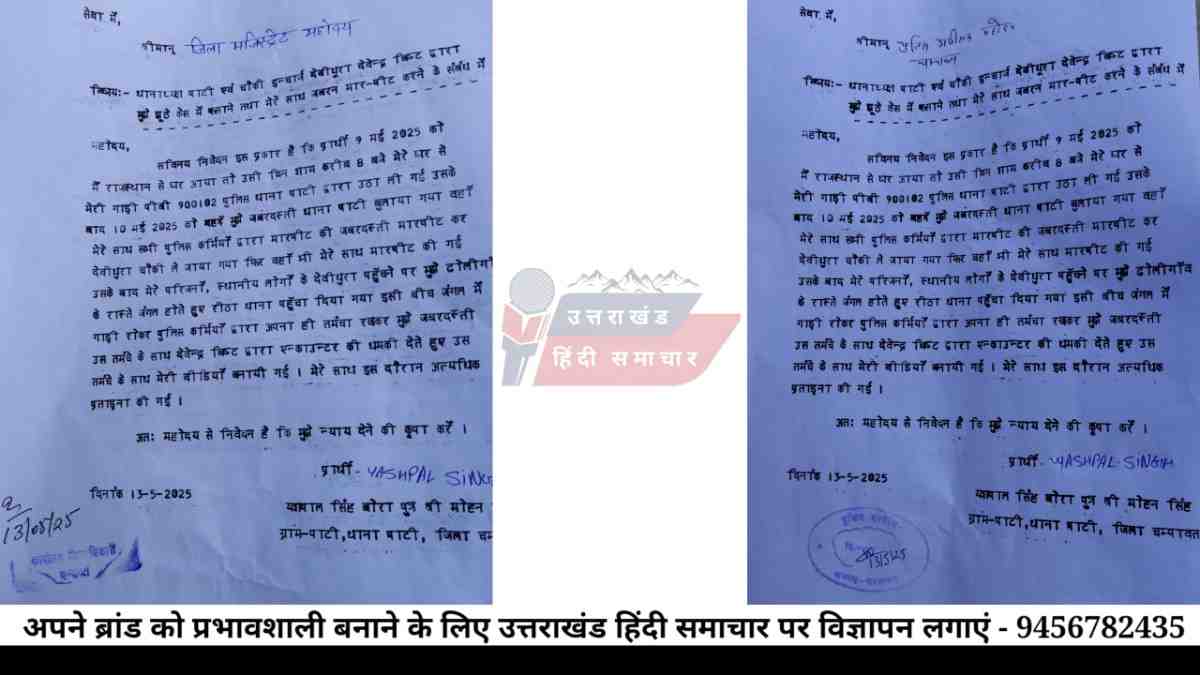 सेवा में,
श्रीमान् जिला मजिस्ट्रेट महोदय
विषय:- थानाध्यक्ष पाटी एवं चौकी इन्चार्ज देवीधुरा देवेन्द्र बिष्ट द्वारा
मुझे झूठे केस में फसाने तथा मेरे साथ जबरन मार-पीट करने के संबंध में
महोदय,
सविनय निवेदन इस प्रकार है कि प्रार्थी 9 मई 2025 को
मैं राजस्थान से घर आया तो उसी दिन शाम करीब 8 बजे मेरे घर से
मेरी गाड़ी पीबी 900102 पुलिस थाना पाटी द्वारा उठा ली गई उसके
बाद 10 मई 2025 को मुझे जबरदस्ती थाना पाटी बुलाया गया वहाँ
मेरे साथ सभी पुलिस कर्मियों द्वारा मारपीट की जबरदस्ती मारपीट कर
देवीधुरा चौकी ले जाया गया फिर वहाँ भी मेरे साथ मारपीट की गई
उसके बाद मेरे परिजनों, स्थानीय लोगों के देवीधुरा पहुँचने पर मुझे ढोलीगाँव
के रास्ते जंगल होते हुए रीठा थाना पहुँचा दिया गया इसी बीच जंगल में
गाड़ी रोकर पुलिस कर्मियों द्वारा अपना ही तमंचा रखकर मुझे जबरदस्ती
उस तमंचे के साथ देवेन्द्र बिष्ट द्वारा एन्काउन्टर की धमकी देते हुए उस
तमंचे के साथ मेरी वीडियाँ बनायी गई । मेरे साथ इस दौरान अत्यधिक
प्रताड़ना की गई ।
अतः महोदय से निवेदन है कि मुझे न्याय देने की कृपा करें ।
प्रार्थी- YASHPAL SING
दिनांक 13-5-2025
यशपाल सिंह बोरा पुत्र श्री मोहन
ग्राम-पाटी,थाना पाटी, जिला चम्
13/05/25
उत्तराखंड
हिंदी समाचार
सेवा में,
श्रीमान् पुलिस अधीक्षक महोदय
चम्पावत
विषय:- थानाध्यक्ष पाटी एवं चौकी इन्चार्ज देवीधुरा देवेन्द्र बिष्ट द्वारा
मुझे झूठे केस में फसाने तथा मेरे साथ जबरन मार-पीट करने के संबंध में
महोदय,
सविनय निवेदन इस प्रकार है कि प्रार्थी 9 मई 2025 को
मैं राजस्थान से घर आया तो उसी दिन शाम करीब 8 बजे मेरे घर से
मेरी गाड़ी पीबी 900102 पुलिस थाना पाटी द्वारा उठा ली गई उसके
बाद 10 मई 2025 को मुझे जबरदस्ती थाना पाटी बुलाया गया वहाँ
मेरे साथ सभी पुलिस कर्मियों द्वारा मारपीट की जबरदस्ती मारपीट कर
देवीधुरा चौकी ले जाया गया फिर वहाँ भी मेरे साथ मारपीट की गई
उसके बाद मेरे परिजनों, स्थानीय लोगों के देवीधुरा पहुँचने पर मुझे ढोलीगाँव
के रास्ते जंगल होते हुए रीठा थाना पहुँचा दिया गया इसी बीच जंगल में
गाड़ी रोकर पुलिस कर्मियों द्वारा अपना ही तमंचा रखकर मुझे जबरदस्ती
उस तमंचे के साथ देवेन्द्र बिष्ट द्वारा एन्काउन्टर की धमकी देते हुए उस
तमंचे के साथ मेरी वीडियाँ बनायी गई । मेरे साथ इस दौरान अत्यधिक
प्रताड़ना की गई ।
अतः महोदय से निवेदन है कि मुझे न्याय देने की कृपा करें ।
प्रार्थी- YASHPAL SINGH
दिनांक 13-5-2025
यशपाल सिंह बोरा पुत्र श्री मोहन सिंह
ग्राम-पाटी,थाना पाटी, जिला चम्पावत
13/5/25
अपने ब्रांड को प्रभावशाली बनाने के लिए उत्तराखंड हिंदी समाचार पर विज्ञापन लगाएं - 9456782435